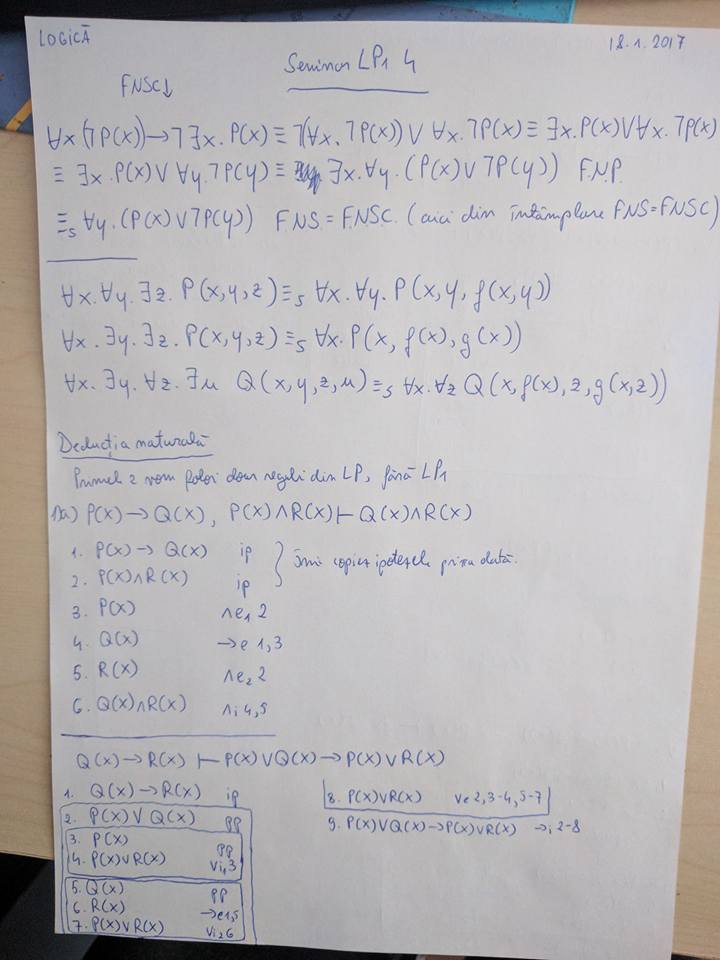 LOGICĂ
18.1.2017
Seminar LP1 4
FNSC↓
∀x(¬P(x))→¬∃x.P(x)≡¬(∀x.¬P(x))∨∀x.¬P(x)≡∃x.P(x)∨∀x.¬P(x)
≡∃x.P(x)∨∀y.¬P(y)≡∃x.∀y.(P(x)∨¬P(y)) F.N.P.
≡s ∀y.(P(x)∨¬P(y)) F.N.S.=F.N.S.C. (aici din întâmplare FNS=FNSC)
∀x.∀y.∃z.P(x,y,z)≡s ∀x.∀y.P(x,y,f(x,y))
∀x.∃y.∃z.P(x,y,z)≡s ∀x.P(x,f(x),g(x))
∀x.∃y.∀z.∃u Q(x,y,z,u)≡s ∀x.∀z Q(x,f(x),z,g(x,z))
Deducția naturală
Primele 2 vom folosi doar reguli din LP, fără LP1
a) P(x)→Q(x), P(x)∧R(x)⊢Q(x)∧R(x)
1. P(x)→Q(x) ip
2. P(x)∧R(x) ip } Îmi copiez ipotezele prima dată.
3. P(x) ∧e₁ 2
4. Q(x) →e 1,3
5. R(x) ∧e₂ 2
6. Q(x)∧R(x) ∧i 4,5
Q(x)→R(x)⊢P(x)∨Q(x)→P(x)∨R(x)
1. Q(x)→R(x) ip
2. P(x)∨Q(x) pp
3. P(x) pp
4. P(x)∨R(x) ∨i₁3
5. Q(x) pp
6. R(x) →e1,5
7. P(x)∨R(x) ∨i₂6
8. P(x)∨R(x) ∨e 2,3-4,5-7
9. P(x)∨Q(x)→P(x)∨R(x) →i 2-8